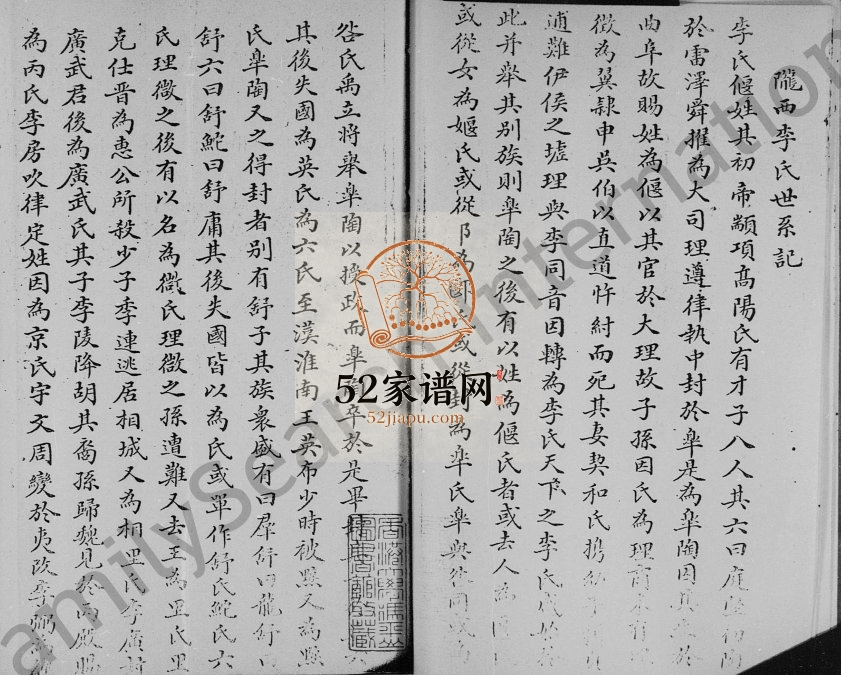 隴西李氏世系記
李氏偃姓其初帝顓頊高陽氏有才子八人其六曰庭堅
於雷澤舜擢為大司理遵律執中封於皋是為皋陶因其
曲阜故賜姓為偃以其官於大理故子孫因氏為理商
徵為翼隸申吳伯以直道忤紂而死其妻契和氏攜
逋難伊侯之墟理與李同音因轉為李氏天下之李氏
此并舉其別族則皋陶之後有以姓為偃氏者或去人為
或從女為嫗氏或從阝為 氏或從 為皋氏皋與 同或為
咎氏禹立將舉皋陶以授政而皋陶卒於是畢
其後失國為英氏為六氏至漢淮南王英布少時被黥又為黥
氏皋陶又之得封者別有舒子其族衆盛有曰羣舒曰龍舒曰
舒六曰舒鮀曰舒庸其後失國皆以為氏或單作舒氏鮀氏六
氏理徵之後有以名為徵氏理徵之孫遭難又去王為里氏里
克仕晉為惠公所殺少子季連逃居相城又為相里氏李廣封
廣武君後為廣武氏其子李陵降胡其裔孫歸魏見於丙殿賜
為丙氏李房吹律定姓因為京氏宇文周變於夷改李弼
52家谱网
52jiapu.com
FamilySearch International